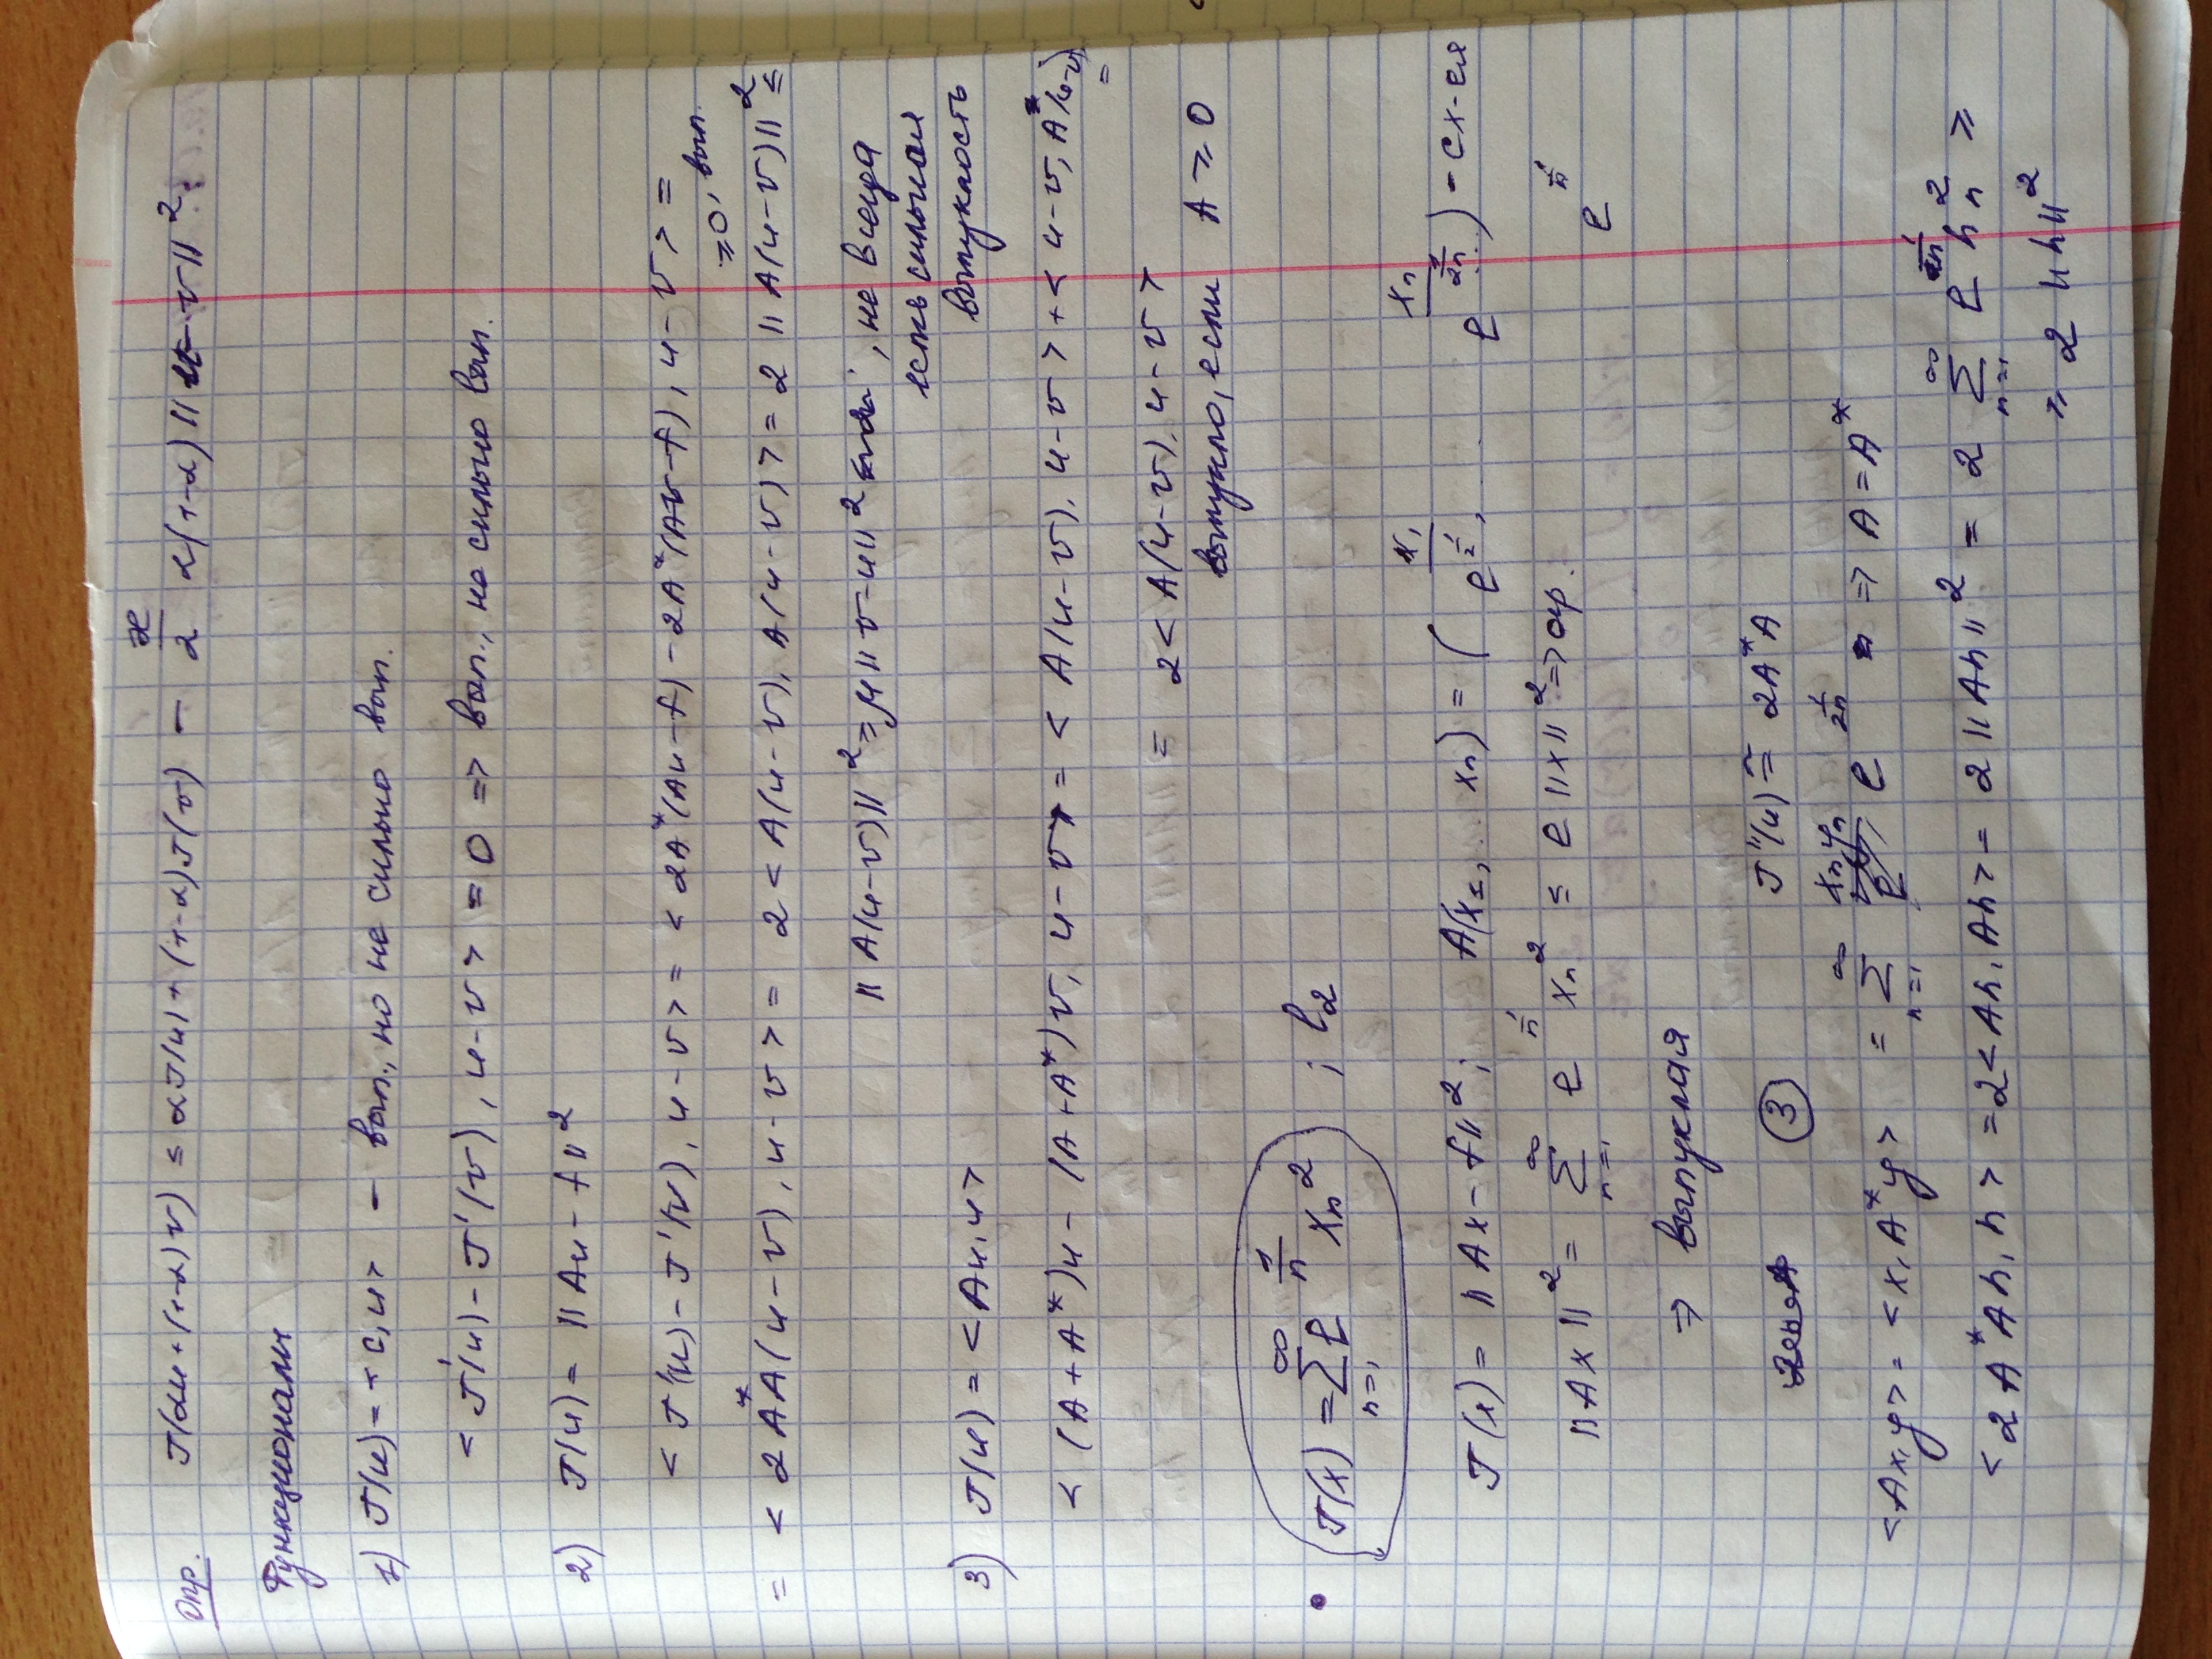 Опр. J(αu+(1-α)v) ≤ αJ(u)+(1-α)J(v) - æ/2 α(1-α)||u-v||²
Функционалы
1) J(u)=<c,u> - вып., но не сильно вып.
<J'(u)-J'(v), u-v> = 0 => вып., но сильно вып.
2) J(u) = ||Au-f||²
<J'(u)-J'(v), u-v> = <2A*(Au-f)-2A*(Av-f), u-v> =
= <2A*A(u-v), u-v> = 2<A(u-v), A(u-v)> = 2||A(u-v)||² ≥0, вып.
||A(u-v)||² ≥ μ||v-u||², не всегда
есть сильная
выпуклость
3) J(u) = <Au,u>
<(A+A*)u-(A+A*)v, u-v> = <A(u-v), u-v>+<u-v, A*(u-v)> =
= 2<A(u-v), u-v>
выпукло, если A ≥ 0
• J(x) = ∑ₙ₌₁^∞ e^(1/n) xₙ² ; l₂
J(x) = ||Ax-f||²; A(x₁, ... xₙ) = (x₁/e^(1/2), ... xₙ/e^(1/2n)) - сх-ся
||Ax||² = ∑ₙ₌₁^∞ e^(1/n) xₙ² ≤ e||x||² => огр. e^(1/n)
=> выпуклая
③ J''(u) = 2A*A
<Ax,y> = <x,A*y> = ∑ₙ₌₁^∞ xₙyₙ e^(1/2n) => A=A*
<2A*Ah,h> = 2<Ah,Ah> = 2||Ah||² = 2 ∑ₙ₌₁^∞ e^(1/n) hₙ² ≥
≥ 2||h||²